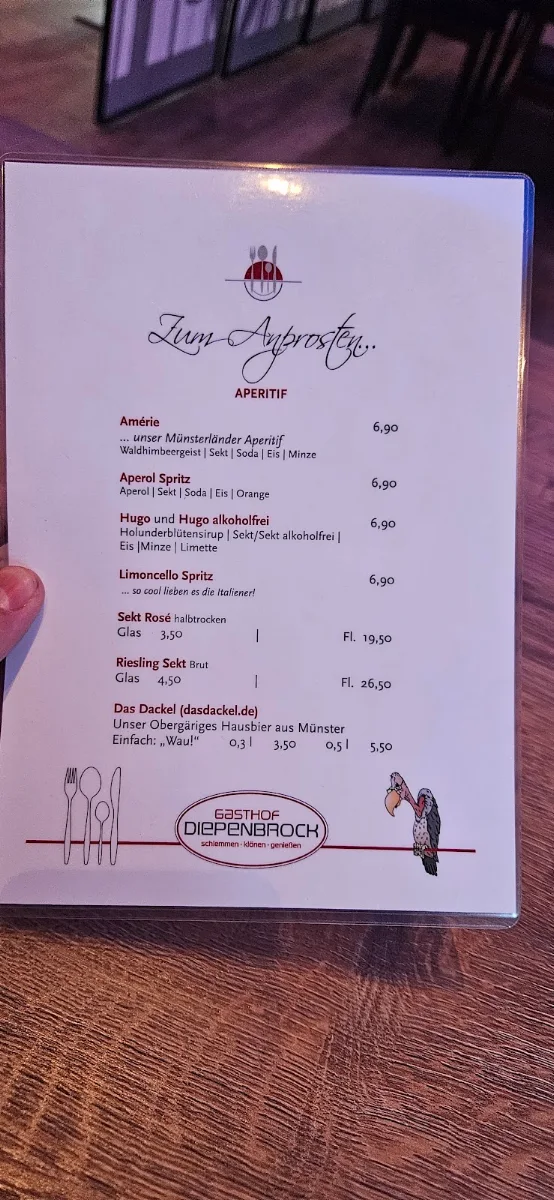 Zum Anprosten...
APERITIF
Amérie 6,90
... unser Münsterländer Aperitif
Waldhimbeergeist | Sekt | Soda | Eis | Minze
Aperol Spritz 6,90
Aperol | Sekt | Soda | Eis | Orange
Hugo und Hugo alkoholfrei 6,90
Holunderblütensirup | Sekt/Sekt alkoholfrei |
Eis |Minze | Limette
Limoncello Spritz 6,90
... so cool lieben es die Italiener!
Sekt Rosé halbtrocken
Glas 3,50 | Fl. 19,50
Riesling Sekt Brut
Glas 4,50 | Fl. 26,50
Das Dackel (dasdackel.de)
Unser Obergäriges Hausbier aus Münster
Einfach: „Wau!“ 0,3 l 3,50 0,5 l 5,50
GASTHOF
DIEPENBROCK
schlemmen · klönen · genießen